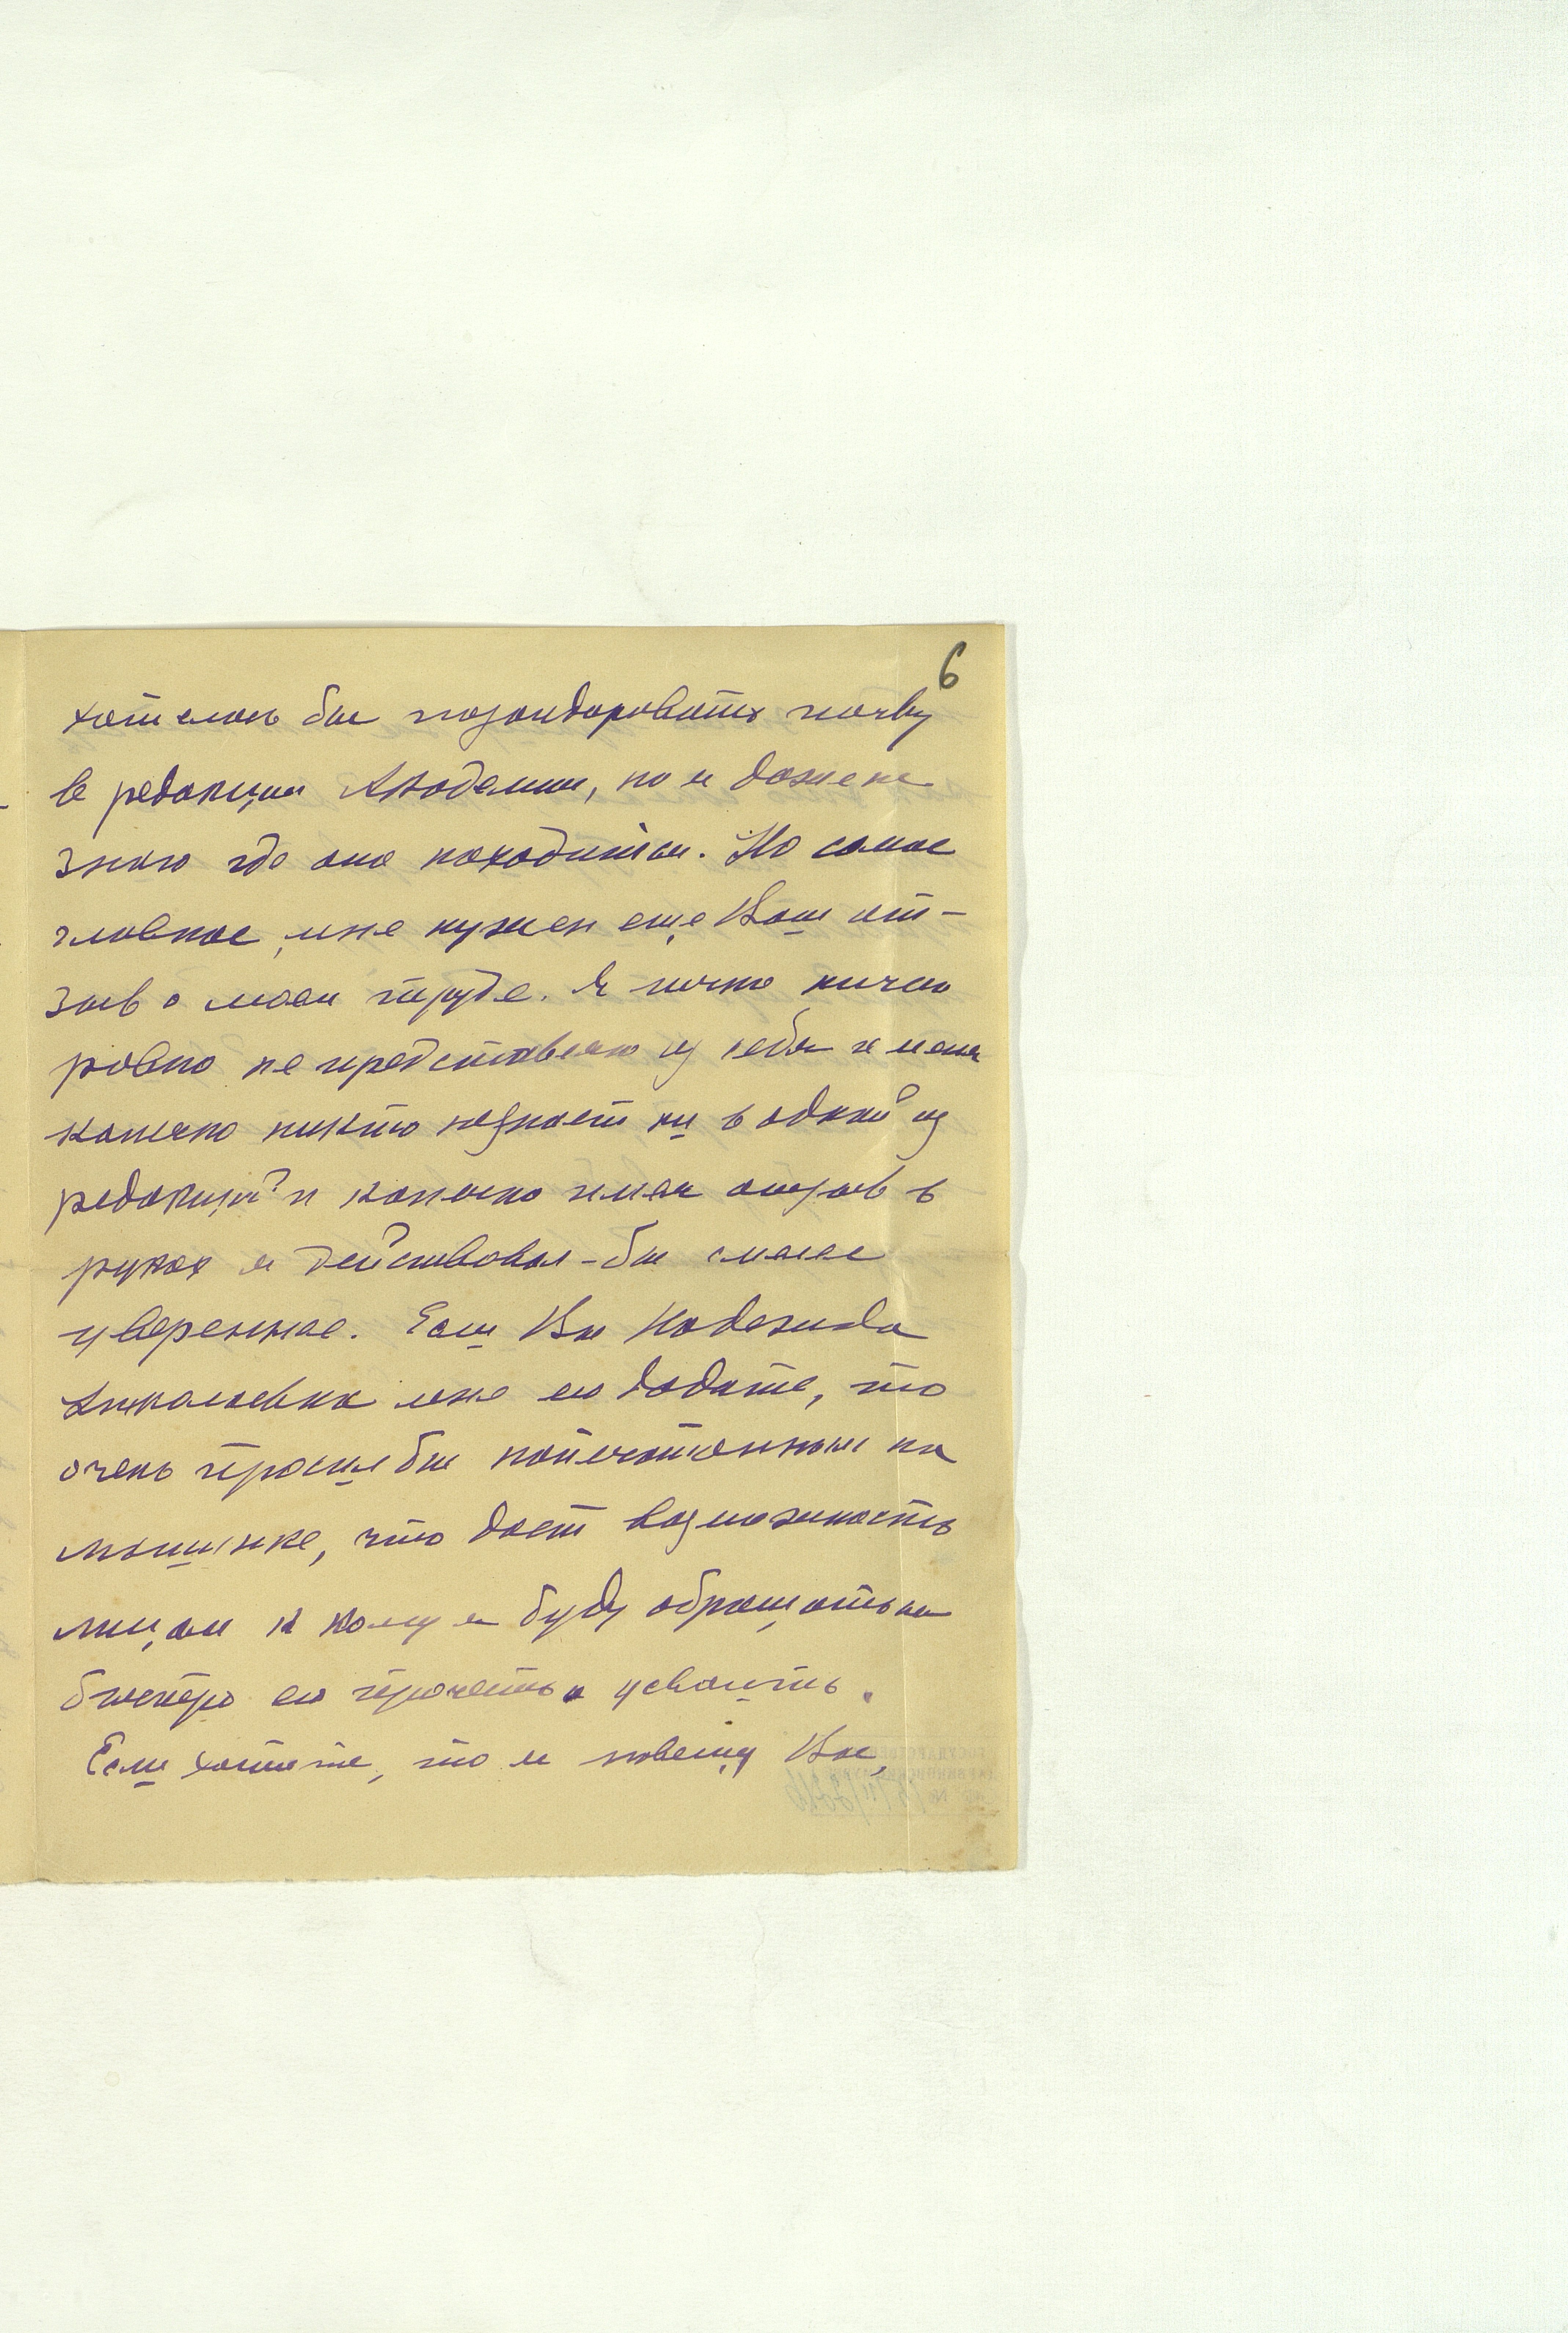 6
хотелось бы позондировать почву
в редакции Академии, но я даже не
знаю где она находится. Но самое
главное, мне нужен еще Ваш от-
зыв о моем труде. Я почти ничего
ровно не представляю из себя и меня
конечно никто не знает ни в одной из
редакций и конечно имея отзыв в
руках я действовал-бы смелее
увереннее. Если Вы Надежда
Николаевна мне его дадите, то
очень просил бы напечатанным на
машинке, что дает возможность
лицам к кому я буду обращаться
быстро его прочесть и усвоить.
Если хотите, то я навещу Вас,